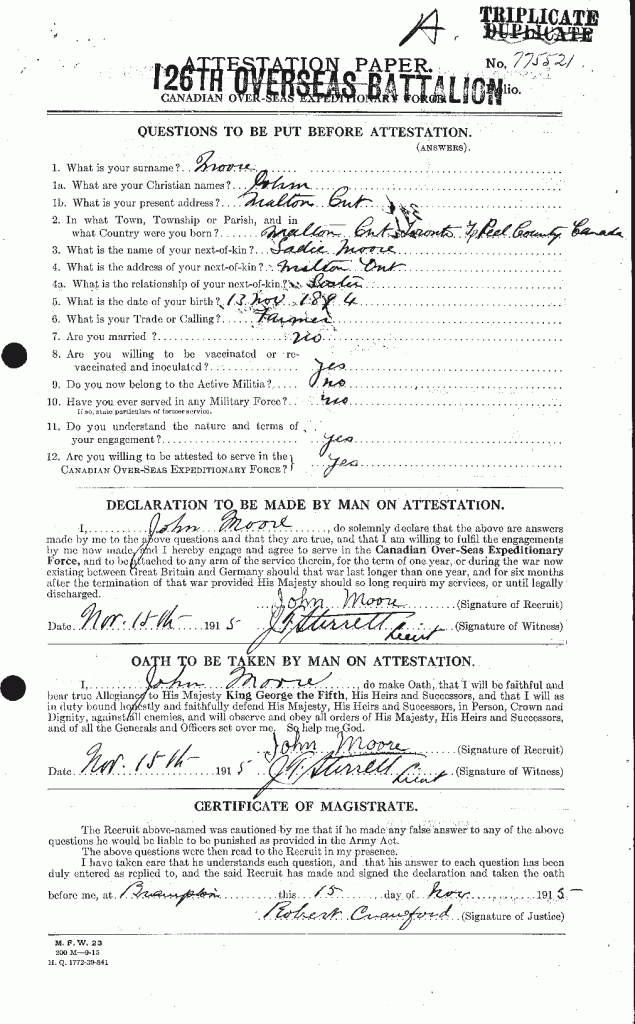 A.
TRIPLICATE
DUPLICATE
ATTESTATION PAPER.
No. 775521
126TH OVERSEAS BATTALION
Folio.
CANADIAN OVER-SEAS EXPEDITIONARY FORCE
QUESTIONS TO BE PUT BEFORE ATTESTATION.
(ANSWERS).
1. What is your surname? Moore
1a. What are your Christian names? John
1b. What is your present address? Malton Ont
2. In what Town, Township or Parish, and in
what Country were you born? Malton Ont Toronto Tp Peel County Canada
3. What is the name of your next-of-kin? Sadie Moore
4. What is the address of your next-of-kin? Malton Ont
4a. What is the relationship of your next-of-kin? Sister
5. What is the date of your birth? 13 Nov 1894
6. What is your Trade or Calling? Farmer
7. Are you married? no
8. Are you willing to be vaccinated or re-
vaccinated and inoculated? yes
9. Do you now belong to the Active Militia? no
10. Have you ever served in any Military Force? no
If so, state particulars of former service.
11. Do you understand the nature and terms of
your engagement? yes
12. Are you willing to be attested to serve in the
CANADIAN OVER-SEAS EXPEDITIONARY FORCE? yes
DECLARATION TO BE MADE BY MAN ON ATTESTATION.
I, John Moore, do solemnly declare that the above are answers
made by me to the above questions and that they are true, and that I am willing to fulfil the engagements
by me now made, and I hereby engage and agree to serve in the Canadian Over-Seas Expeditionary
Force, and to be attached to any arm of the service therein, for the term of one year, or during the war now
existing between Great Britain and Germany should that war last longer than one year, and for six months
after the termination of that war provided His Majesty should so long require my services, or until legally
discharged.
John Moore (Signature of Recruit)
Date Nov. 15th 1915 J. Sterrett Lieut (Signature of Witness)
OATH TO BE TAKEN BY MAN ON ATTESTATION.
I, John Moore, do make Oath, that I will be faithful and
bear true Allegiance to His Majesty King George the Fifth, His Heirs and Successors, and that I will as
in duty bound honestly and faithfully defend His Majesty, His Heirs and Successors, in Person, Crown and
Dignity, against all enemies, and will observe and obey all orders of His Majesty, His Heirs and Successors,
and of all the Generals and Officers set over me. So help me God.
John Moore (Signature of Recruit)
Date Nov. 15th 1915 J. Sterrett Lieut (Signature of Witness)
CERTIFICATE OF MAGISTRATE.
The Recruit above-named was cautioned by me that if he made any false answer to any of the above
questions he would be liable to be punished as provided in the Army Act.
The above questions were then read to the Recruit in my presence.
I have taken care that he understands each question, and that his answer to each question has been
duly entered as replied to, and the said Recruit has made and signed the declaration and taken the oath
before me, at Brampton this 15 day of Nov 1915
Robert Crawford (Signature of Justice)
M. F. W. 23
200 M—9-15
H. Q. 1772-39-841